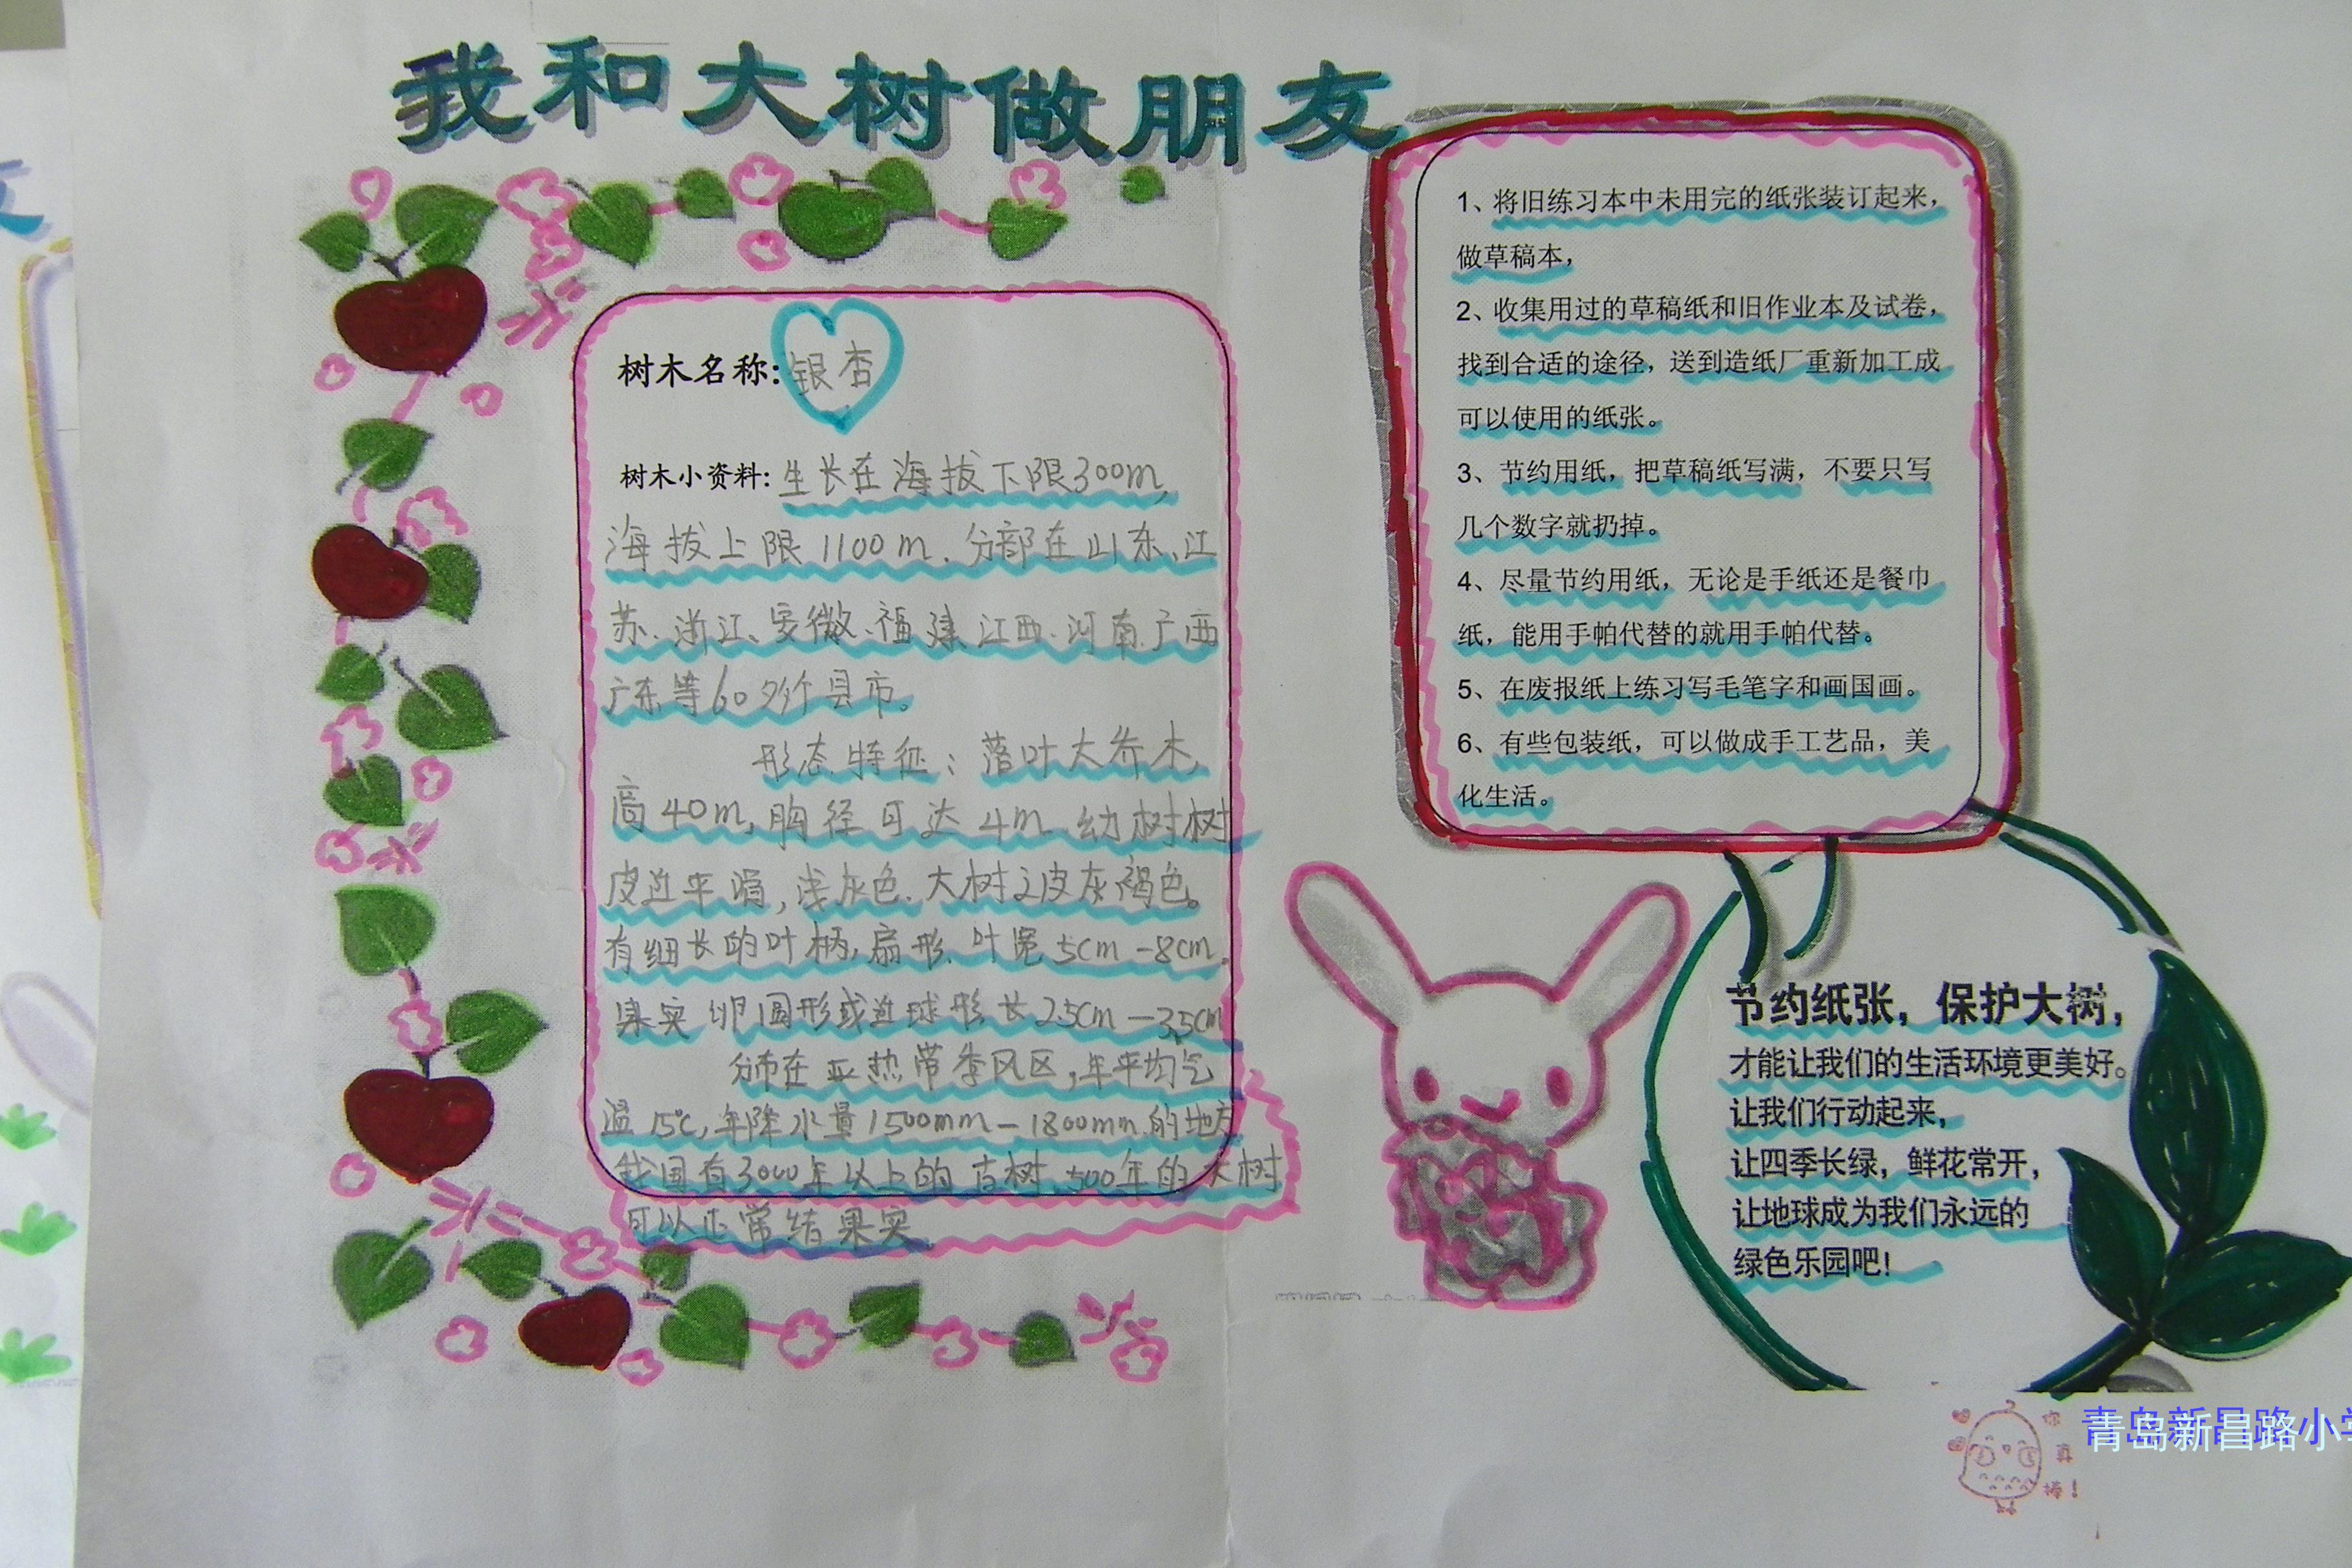 我和大树做朋友
树木名称:银杏
树木小资料:生长在海拔下限300m,
海拔上限1100m.分部在山东、江
苏、浙江、安微、福建、江西、河南、广西
广东等60多个县市。
形态特征:落叶大乔木,
高40m,胸径可达4m 幼树树
皮近平滑,浅灰色.大树之皮灰褐色。
有细长的叶柄,扇形.叶宽5cm-8cm,
果实卵圆形或近球形长2.5cm-3.5cm
分布在亚热带季风区,年平均气
温15℃,年降水量1500mm-1800mm.的地方
我国有3000年以上的古树.500年的大树
可以正常结果实
1、将旧练习本中未用完的纸张装订起来,
做草稿本,
2、收集用过的草稿纸和旧作业本及试卷,
找到合适的途径,送到造纸厂重新加工成
可以使用的纸张。
3、节约用纸,把草稿纸写满,不要只写
几个数字就扔掉。
4、尽量节约用纸,无论是手纸还是餐巾
纸,能用手帕代替的就用手帕代替。
5、在废报纸上练习写毛笔字和画国画。
6、有些包装纸,可以做成手工艺品,美
化生活。
节约纸张,保护大树,
才能让我们的生活环境更美好。
让我们行动起来,
让四季长绿,鲜花常开,
让地球成为我们永远的
绿色乐园吧!
你真棒!
青岛新昌路小学